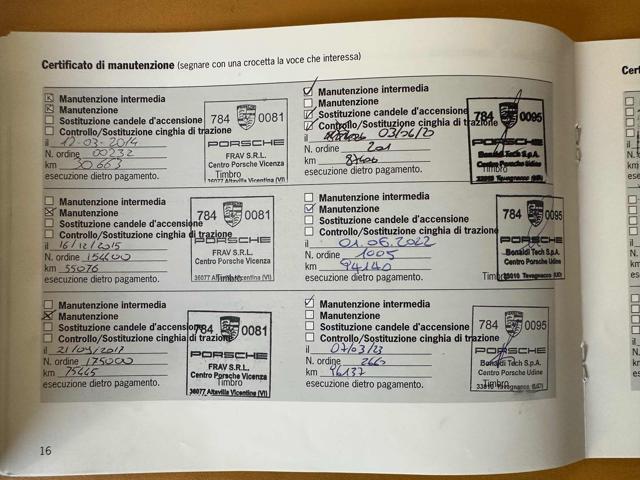 Certificato di manutenzione (segnare con una crocetta la voce che interessa)
Manutenzione intermedia
Manutenzione
Sostituzione candele d'accensione
Controllo/Sostituzione cinghia di trazione
il 12.03.2014
N. ordine 00232
km 30663
esecuzione dietro pagamento.
784 0081
PORSCHE
FRAV S.R.L.
Centro Porsche Vicenza
Timbro
36077 Altavilla Vicentina (VI)
Manutenzione intermedia
Manutenzione
Sostituzione candele d'accensione
Controllo/Sostituzione cinghia di trazione
il 16/12/2015
N. ordine 154600
km 55076
esecuzione dietro pagamento.
784 0081
PORSCHE
FRAV S.R.L.
Centro Porsche Vicenza
Timbro
36077 Altavilla Vicentina (VI)
Manutenzione intermedia
Manutenzione
Sostituzione candele d'accensione
Controllo/Sostituzione cinghia di trazione
il 21/03/2017
N. ordine 175000
km 75445
esecuzione dietro pagamento.
784 0081
PORSCHE
FRAV S.R.L.
Centro Porsche Vicenza
Timbro
36077 Altavilla Vicentina (VI)
Manutenzione intermedia
Manutenzione
Sostituzione candele d'accensione
Controllo/Sostituzione cinghia di trazione
il 03/06/20
N. ordine 201
km 87600
esecuzione dietro pagamento.
784 0095
PORSCHE
Bonaldi Tech S.p.A.
Centro Porsche Udine
Timbro
33010 Tavagnacco (UD)
Manutenzione intermedia
Manutenzione
Sostituzione candele d'accensione
Controllo/Sostituzione cinghia di trazione
il 01.06.2022
N. ordine 1005
km 94140
esecuzione dietro pagamento.
784 0095
PORSCHE
Bonaldi Tech S.p.A.
Centro Porsche Udine
Timbro
33010 Tavagnacco (UD)
Manutenzione intermedia
Manutenzione
Sostituzione candele d'accensione
Controllo/Sostituzione cinghia di trazione
il 07/03/23
N. ordine 260
km 96137
esecuzione dietro pagamento.
784 0095
PORSCHE
Bonaldi Tech S.p.A.
Centro Porsche Udine
Timbro
33010 Tavagnacco (UD)
16
Cert